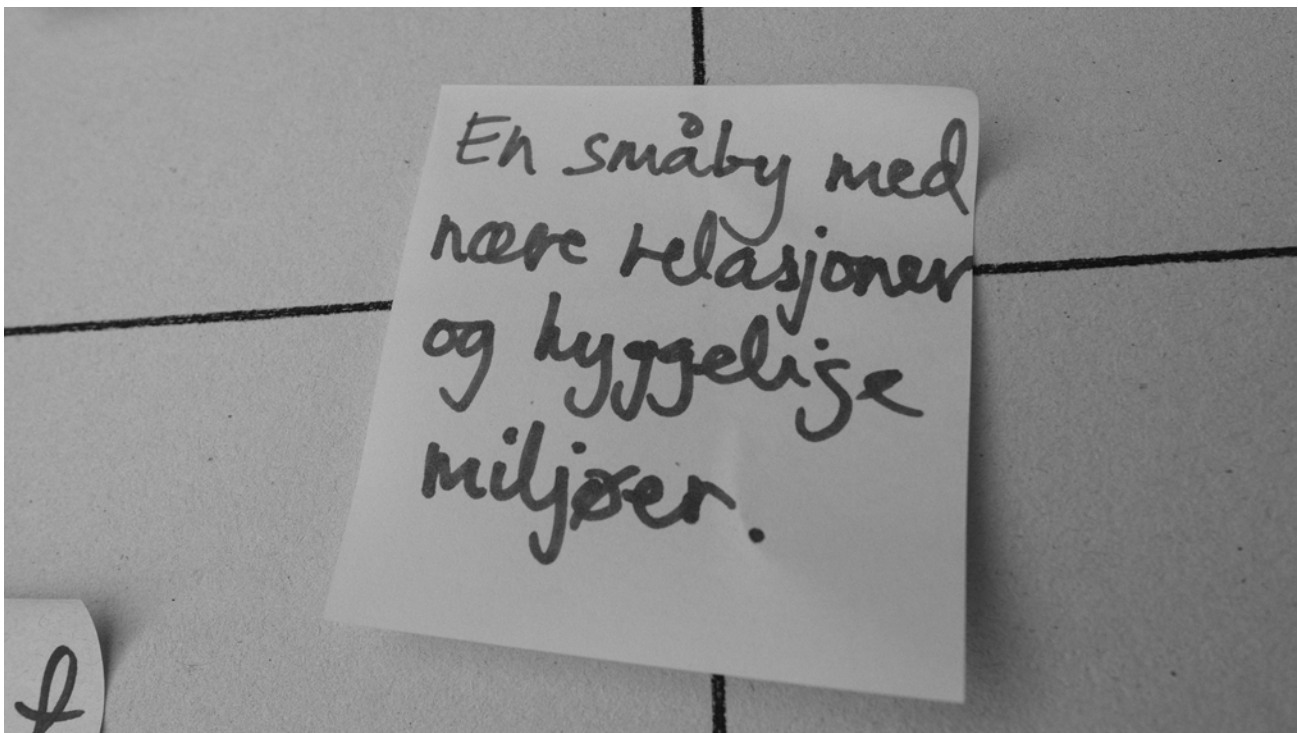 En småby med
nære relasjoner
og hyggelige
miljøer.